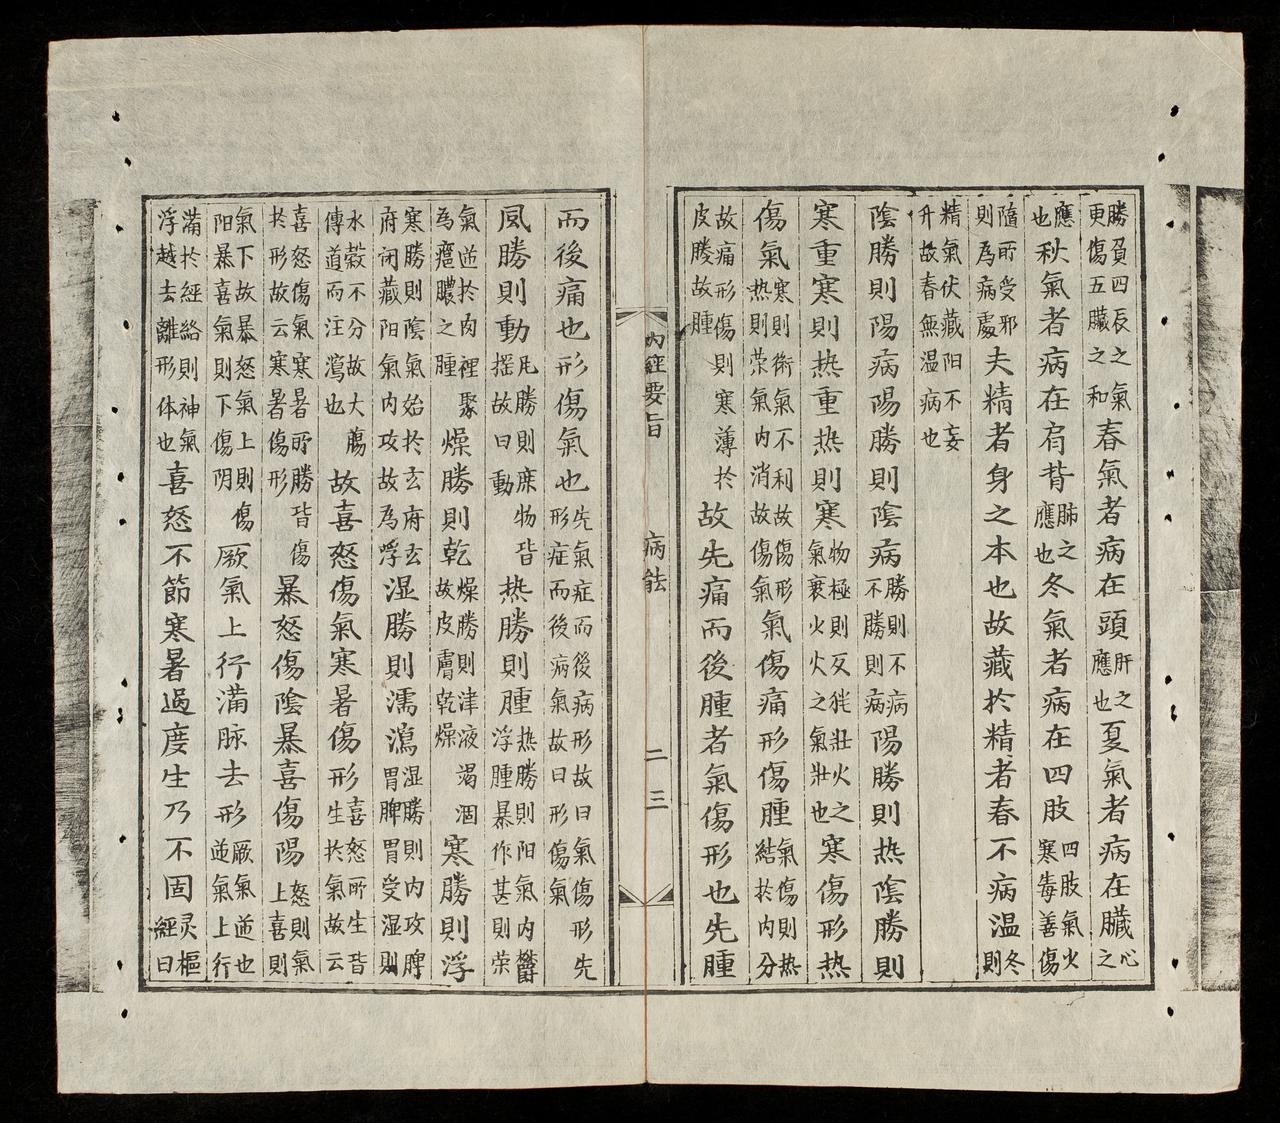 勝負四辰之氣更傷五臟之和春氣者病在頭肝之應也夏氣者病在臟心之
應也秋氣者病在肩背肺之應也冬氣者病在四肢四肢氣火寒毒善傷
隨所受邪則為病處夫精者身之本也故藏於精者春不病温冬則
精氣伏藏阳不妄升故春無温病也
陰勝則陽病陽勝則陰病勝則不病不勝則病陽勝則热陰勝則
寒重寒則热重热則寒物極則反犹壮火之氣衰火火之氣壮也寒傷形热
傷氣寒則衛氣不利故傷形热則荣氣内消故傷氣氣傷痛形傷腫氣傷則热結於内分
故痛形傷則寒薄於皮腠故腫故先痛而後腫者氣傷形也先腫
内經要旨 病能 二三
而後痛也形傷氣也先氣症而後病形故曰氣傷形先形症而後病氣故曰形傷氣
風勝則動风勝則庶物皆摇故曰動热勝則腫热勝則阳氣内鬱浮腫暴作甚則荣
氣逆於肉裡聚為癰膿之腫燥勝則乾燥勝則津液渴涸故皮膚乾燥寒勝則浮
寒勝則陰氣始於玄府玄府闭藏阳氣内攻故為浮湿勝則濡瀉湿勝則内攻脾胃脾胃受湿則
水穀不分故大腸傳道而注瀉也故喜怒傷氣寒暑傷形喜怒所生皆生於氣故云
喜怒傷氣寒暑所勝皆傷於形故云寒暑傷形暴怒傷陰暴喜傷陽怒則氣上喜則
氣下故暴怒氣上則傷阳暴喜氣則下傷阴厥氣上行滿脉去形厥氣逆也逆氣上行
滿於經絡則神氣浮越去離形体也喜怒不節寒暑過度生乃不固灵樞經曰